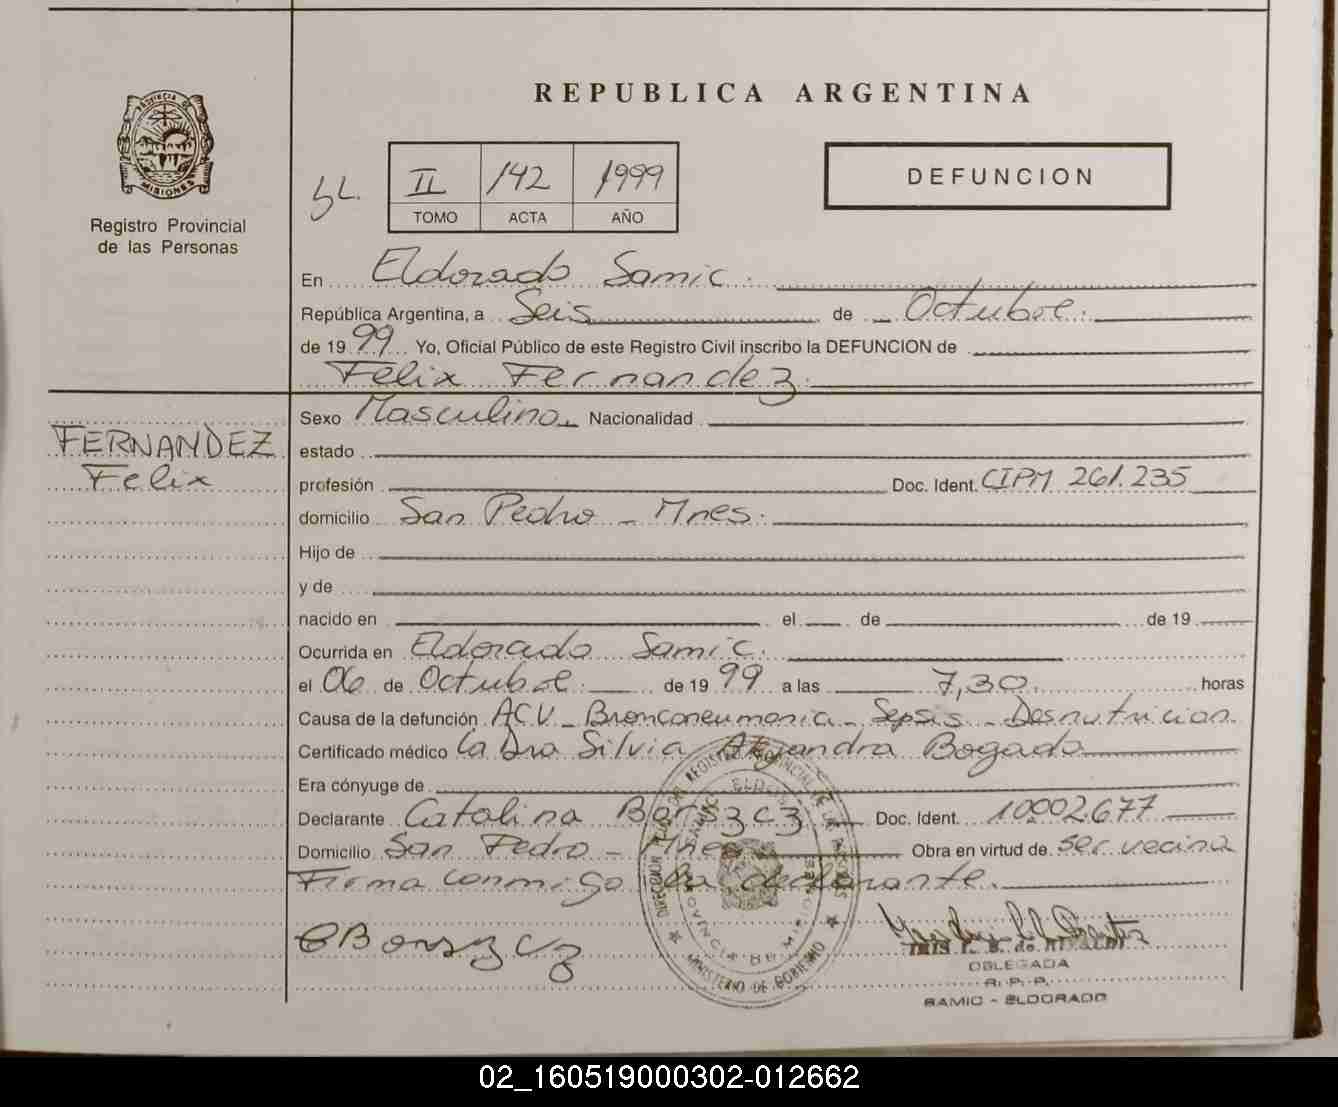 REPUBLICA ARGENTINA
PROVINCIA DE
MISIONES
Registro Provincial
de las Personas
II 142 1999
TOMO ACTA AÑO
DEFUNCION
En Eldorado Samic.
República Argentina, a Seis de Octubre.
de 19 99 Yo, Oficial Público de este Registro Civil inscribo la DEFUNCION de
Felix Fernandez.
FERNANDEZ
Felix
Sexo Masculino Nacionalidad
estado
profesión Doc. Ident. CIPM 261.235
domicilio San Pedro - Mnes.
Hijo de
y de
nacido en el de de 19
Ocurrida en Eldorado Samic.
el 06 de Octubre. de 19 99 a las 7,30 horas
Causa de la defunción ACV - Bronconeumonia - Sepsis - Desnutricion.
Certificado médico La Dra Silvia Alejandra Bogado
Era cónyuge de
Declarante Catalina Doc. Ident. 10002677
Domicilio San Pedro - Mnes Obra en virtud de ser vecina
Firma conmigo la declarante.
DIRECCION REGISTRO PROVINCIAL DE LAS PERSONAS
MINISTERIO DE GOBIERNO
PROVINCIA DE MISIONES
DELEGADA
R. P. P.
SAMIC - ELDORADO
02_160519000302-012662